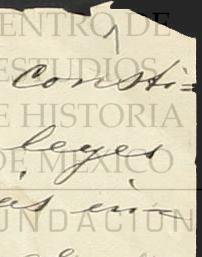 ENTRO DE
ESTUDIOS
consti=
E HISTORIA
leyes
DE MÉXICO
FUNDACIÓN